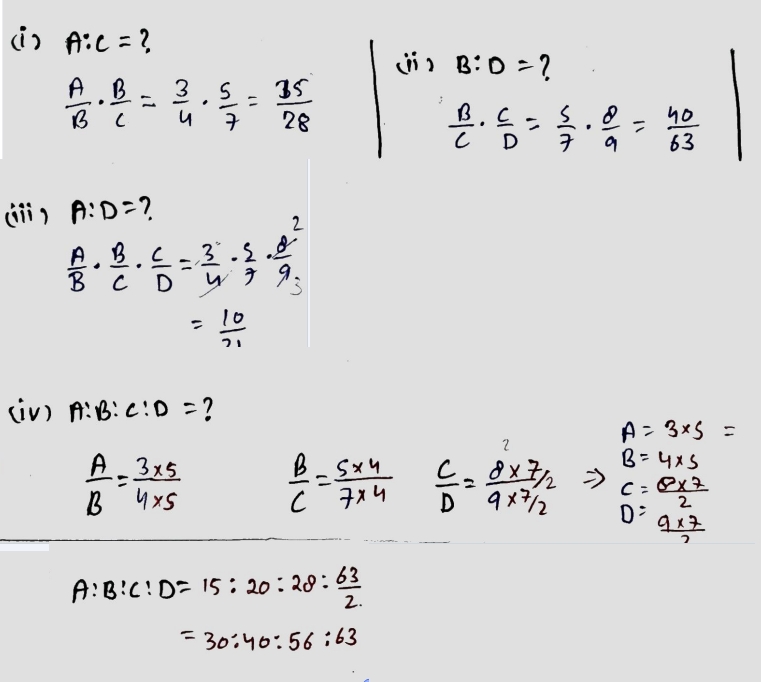 (i) A:C = ?
A/B · B/C = 3/4 · 5/7 = 35/28
(ii) B:D = ?
B/C · C/D = 5/7 · 8/9 = 40/63
(iii) A:D = ?
A/B · B/C · C/D = 3/4 · 5/7 · 8/9 2 3
= 10/21
(iv) A:B:C:D = ?
A/B = 3×5/4×5 B/C = 5×4/7×4 C/D = 8×7/2 / 9×7/2 ⇒
2
A = 3×5 =
B = 4×5
C = 8×7/2
D = 9×7/2
A:B:C:D = 15 : 20 : 28 : 63/2.
= 30:40:56:63